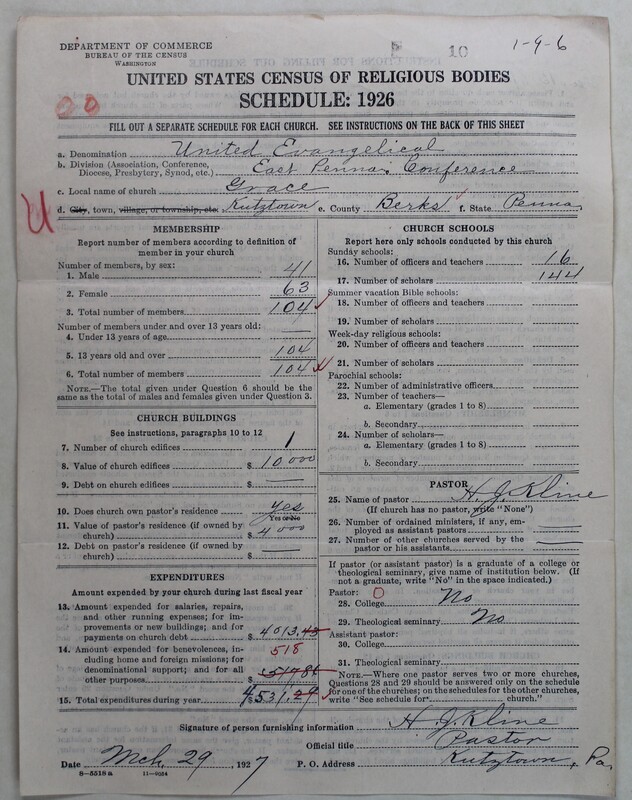 DEPARTMENT OF COMMERCE
BUREAU OF THE CENSUS
WASHINGTON
10
1-9-6
UNITED STATES CENSUS OF RELIGIOUS BODIES
SCHEDULE: 1926
FILL OUT A SEPARATE SCHEDULE FOR EACH CHURCH. SEE INSTRUCTIONS ON THE BACK OF THIS SHEET
a. Denomination United Evangelical
b. Division (Association, Conference, Diocese, Presbytery, Synod, etc.) East Penna. Conference
c. Local name of church Grace
d. City, town, village, or township, etc. Kutztown e. County Berks f. State Penna.
U
MEMBERSHIP
Report number of members according to definition of member in your church
Number of members, by sex:
1. Male 41
2. Female 63
3. Total number of members 104
Number of members under and over 13 years old:
4. Under 13 years of age
5. 13 years old and over 104
6. Total number of members 104
NOTE.—The total given under Question 6 should be the same as the total of males and females given under Question 3.
CHURCH BUILDINGS
See instructions, paragraphs 10 to 12
7. Number of church edifices 1
8. Value of church edifices $ 10000
9. Debt on church edifices $
10. Does church own pastor's residence Yes
Yes or No
11. Value of pastor's residence (if owned by church) $ 4000
12. Debt on pastor's residence (if owned by church) $
EXPENDITURES
Amount expended by your church during last fiscal year
13. Amount expended for salaries, repairs, and other running expenses; for improvements or new buildings; and for payments on church debt $ 4013.43
14. Amount expended for benevolences, including home and foreign missions; for denominational support; and for all other purposes $ 517 86
518
15. Total expenditures during year $ 4531.29
CHURCH SCHOOLS
Report here only schools conducted by this church
Sunday schools:
16. Number of officers and teachers 16
17. Number of scholars 144
Summer vacation Bible schools:
18. Number of officers and teachers
19. Number of scholars
Week-day religious schools:
20. Number of officers and teachers
21. Number of scholars
Parochial schools:
22. Number of administrative officers
23. Number of teachers—
a. Elementary (grades 1 to 8)
b. Secondary
24. Number of scholars—
a. Elementary (grades 1 to 8)
b. Secondary
PASTOR
25. Name of pastor H. J. Kline
(If church has no pastor, write "None")
26. Number of ordained ministers, if any, employed as assistant pastors
27. Number of other churches served by the pastor or his assistants
If pastor (or assistant pastor) is a graduate of a college or theological seminary, give name of institution below. (If not a graduate, write "No" in the space indicated.)
Pastor: 0
28. College No
29. Theological seminary No
Assistant pastor:
30. College
31. Theological seminary
NOTE.—Where one pastor serves two or more churches, Questions 28 and 29 should be answered only on the schedule for one of the churches; on the schedules for the other churches, write "See schedule for church."
Signature of person furnishing information H. J. Kline
Official title Pastor
Date Mch. 29, 1927 P. O. Address Kutztown, Pa.
8—5518 a 11—9034